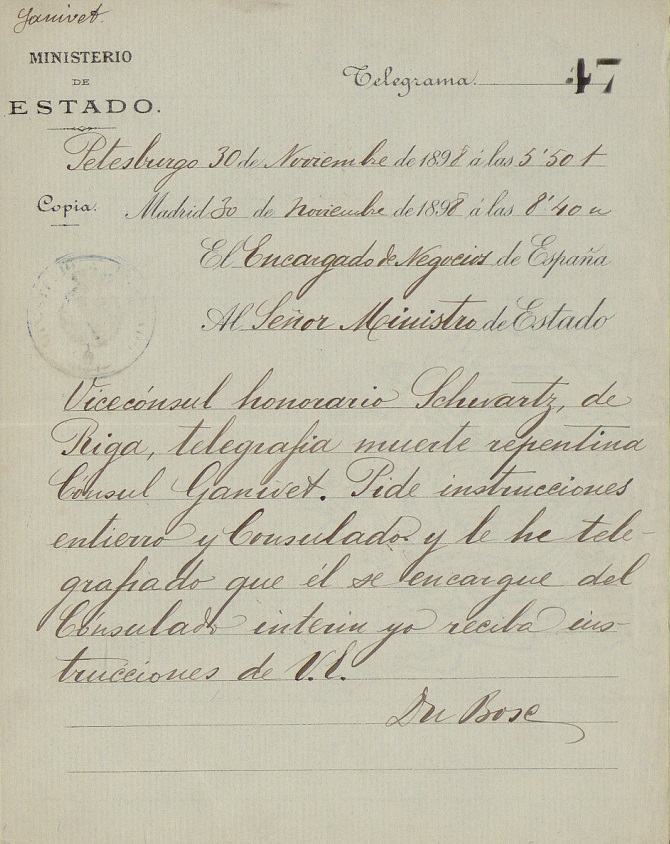 Ganivet.
MINISTERIO
DE
ESTADO.
Telegrama. 47
Petesburgo 30 de Noviembre de 1898 á las 5'50 t
Copia. Madrid 30 de noviembre de 1898 á las 8'40 n
El Encargado de Negocios de España
Al Señor Ministro de Estado
Vicecónsul honorario Schwartz, de
Riga, telegrafia muerte repentina
Cónsul Ganivet. Pide instrucciones
entierro y Consulado y le he tele-
grafiado que él se encargue del
Consulado interin yo reciba ins-
trucciones de V.E.
Du Bosc